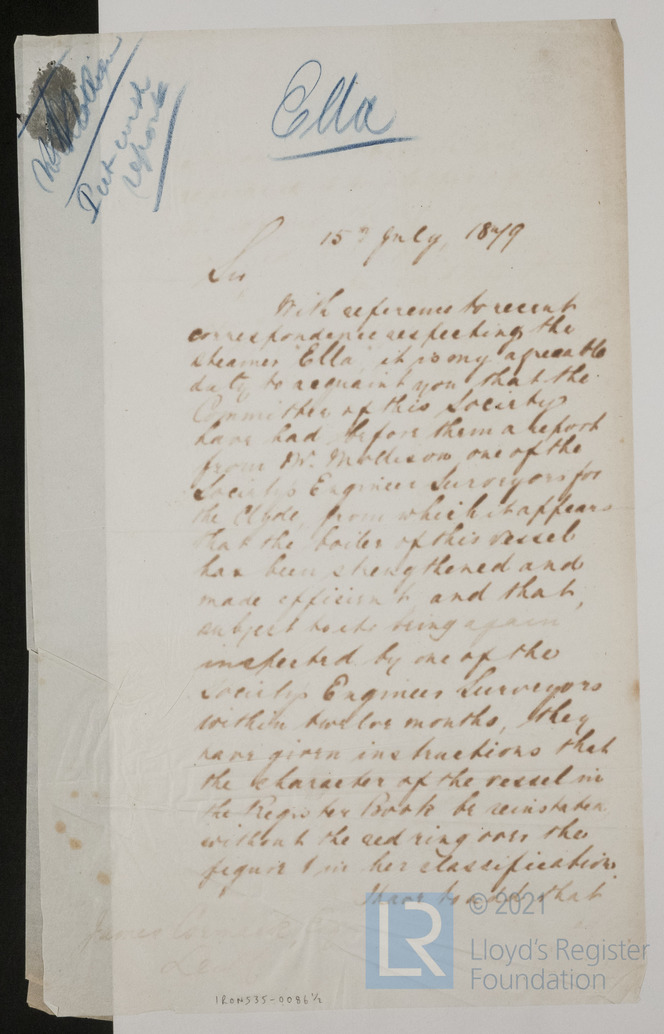 Put with
reports
Ella
15th July, 1879
Sir
With reference to recent
correspondence respecting the
steamer "Ella", it is my agreeable
duty to acquaint you that the
Committee of this Society
have had before them a report
from Mr. Mollison one of the
Society's Engineer Surveyors for
the Clyde, from which it appears
that the boiler of this vessel
has been strengthened and
made efficient and that,
subject to its being again
inspected by one of the
Society's Engineer Surveyors
within twelve months, they
have given instructions that
the character of the vessel in
the Register Book be reinstated
without the red ring over the
figure 1 in her classification.
I have to add that
James
IRON535-0086 1/2
LR
© 2021
Lloyd's Register
Foundation